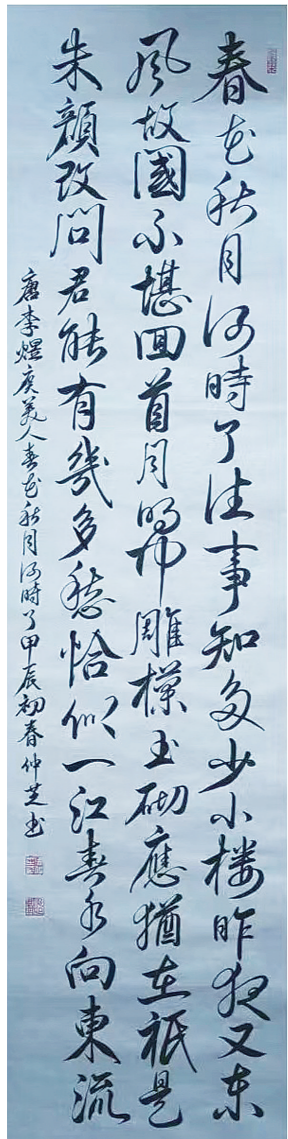 春花秋月何時了往事知多少小楼昨夜又东
風故國不堪回首月明中雕欄玉砌應猶在祇是
朱顏改問君能有幾多愁恰似一江春水向東流
唐李煜虞美人春花秋月何時了甲辰初春仲芝书